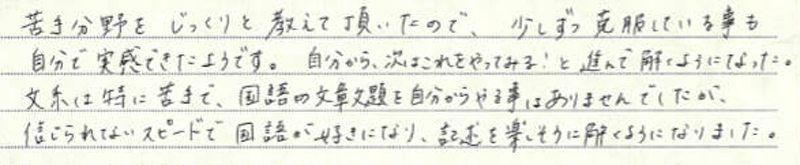 苦手分野を じっくりと 教えて頂いたので、 少しずつ 克服している事も
自分で実感できたようです。 自分から、次はこれをやってみる！と 進んで 解くようになった。
文系は特に苦手で、国語の文章文題を自分からやる事はありませんでしたが、
信じられないスピードで 国語が好きになり、記述を楽しそうに解くようになりました。